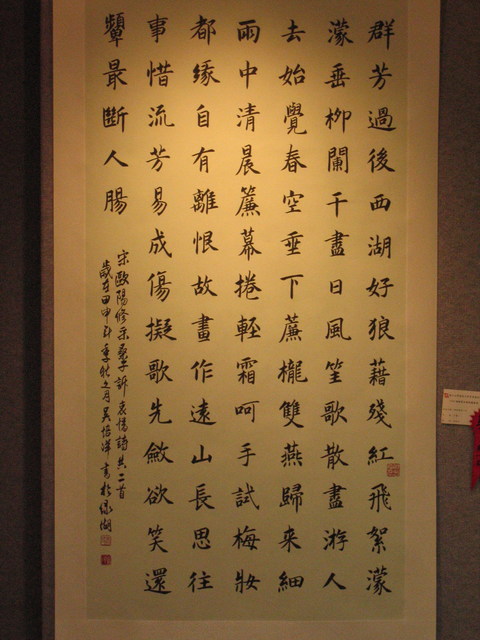 群芳過後西湖好狼藉殘紅飛絮濛
濛垂柳闌干盡日風笙歌散盡游人
去始覺春空垂下簾櫳雙燕歸来細
雨中清晨簾幕捲輕霜呵手試梅妝
都緣自有離恨故畫作遠山長思往
事惜流芳易成傷擬歌先斂欲笑還
顰最斷人腸
宋歐陽修采桑子訴衷情詩共二首
歲在甲申季秋之月吳怡書於綠湖